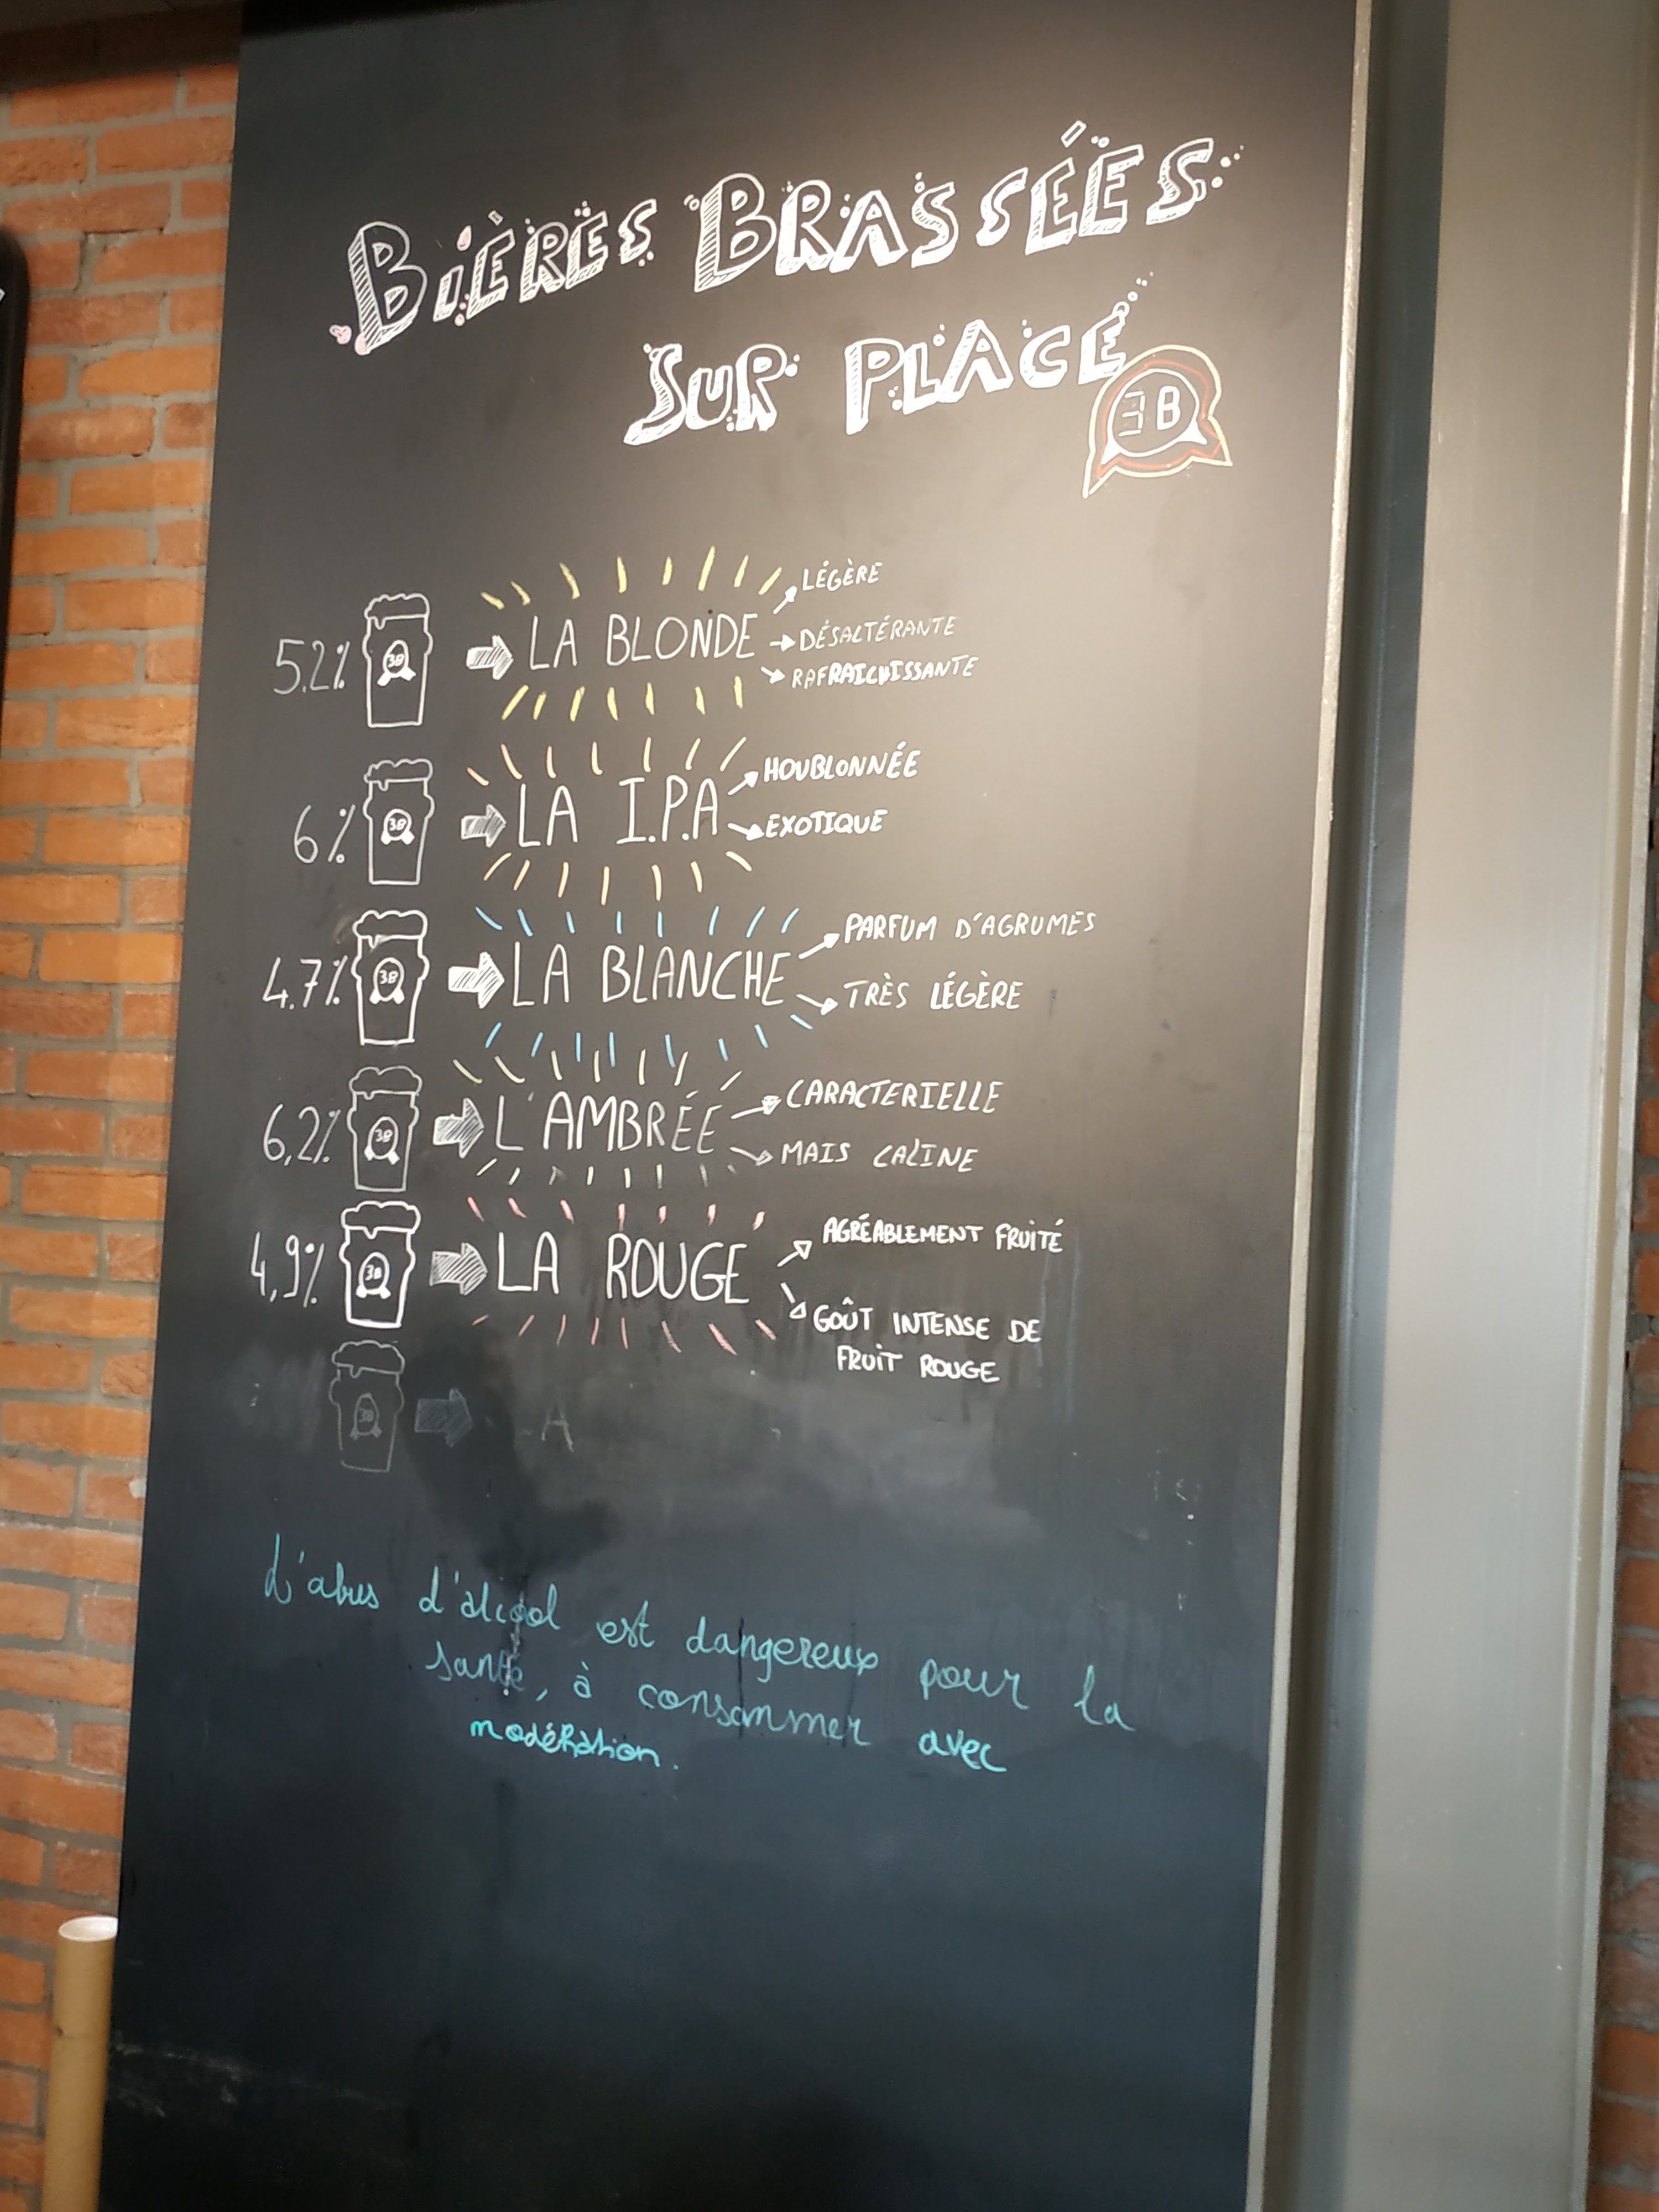 BIÈRES BRASSÉES
SUR PLACE
3B
5.2% 3B LA BLONDE
LÉGÈRE
DÉSALTÉRANTE
RAFRAICHISSANTE
6% 3B LA I.P.A
HOUBLONNÉE
EXOTIQUE
4.7% 3B LA BLANCHE
PARFUM D'AGRUMES
TRÈS LÉGÈRE
6,2% 3B L'AMBRÉE
CARACTERIELLE
MAIS CALINE
4,9% 3B LA ROUGE
AGRÉABLEMENT FRUITÉ
GOÛT INTENSE DE
FRUIT ROUGE
3B A
L'abus d'alcool est dangereux pour la
santé, à consommer avec
modération.